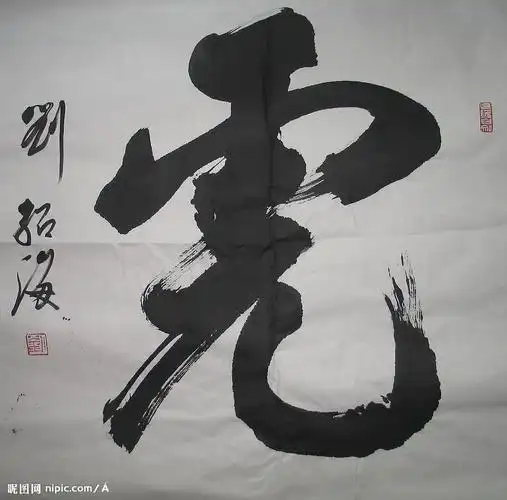 虎
劉紹海
昵图网 nipic.com/Á